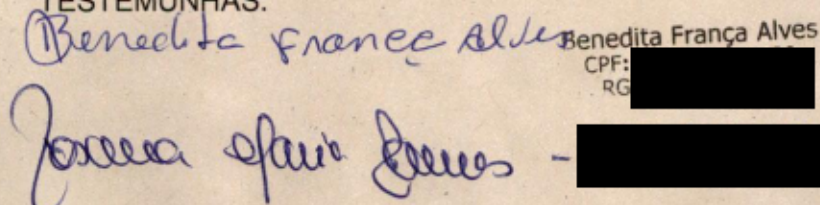 TESTEMUNHAS:
Benedita França Alves Benedita França Alves
CPF:
RG
Maria -